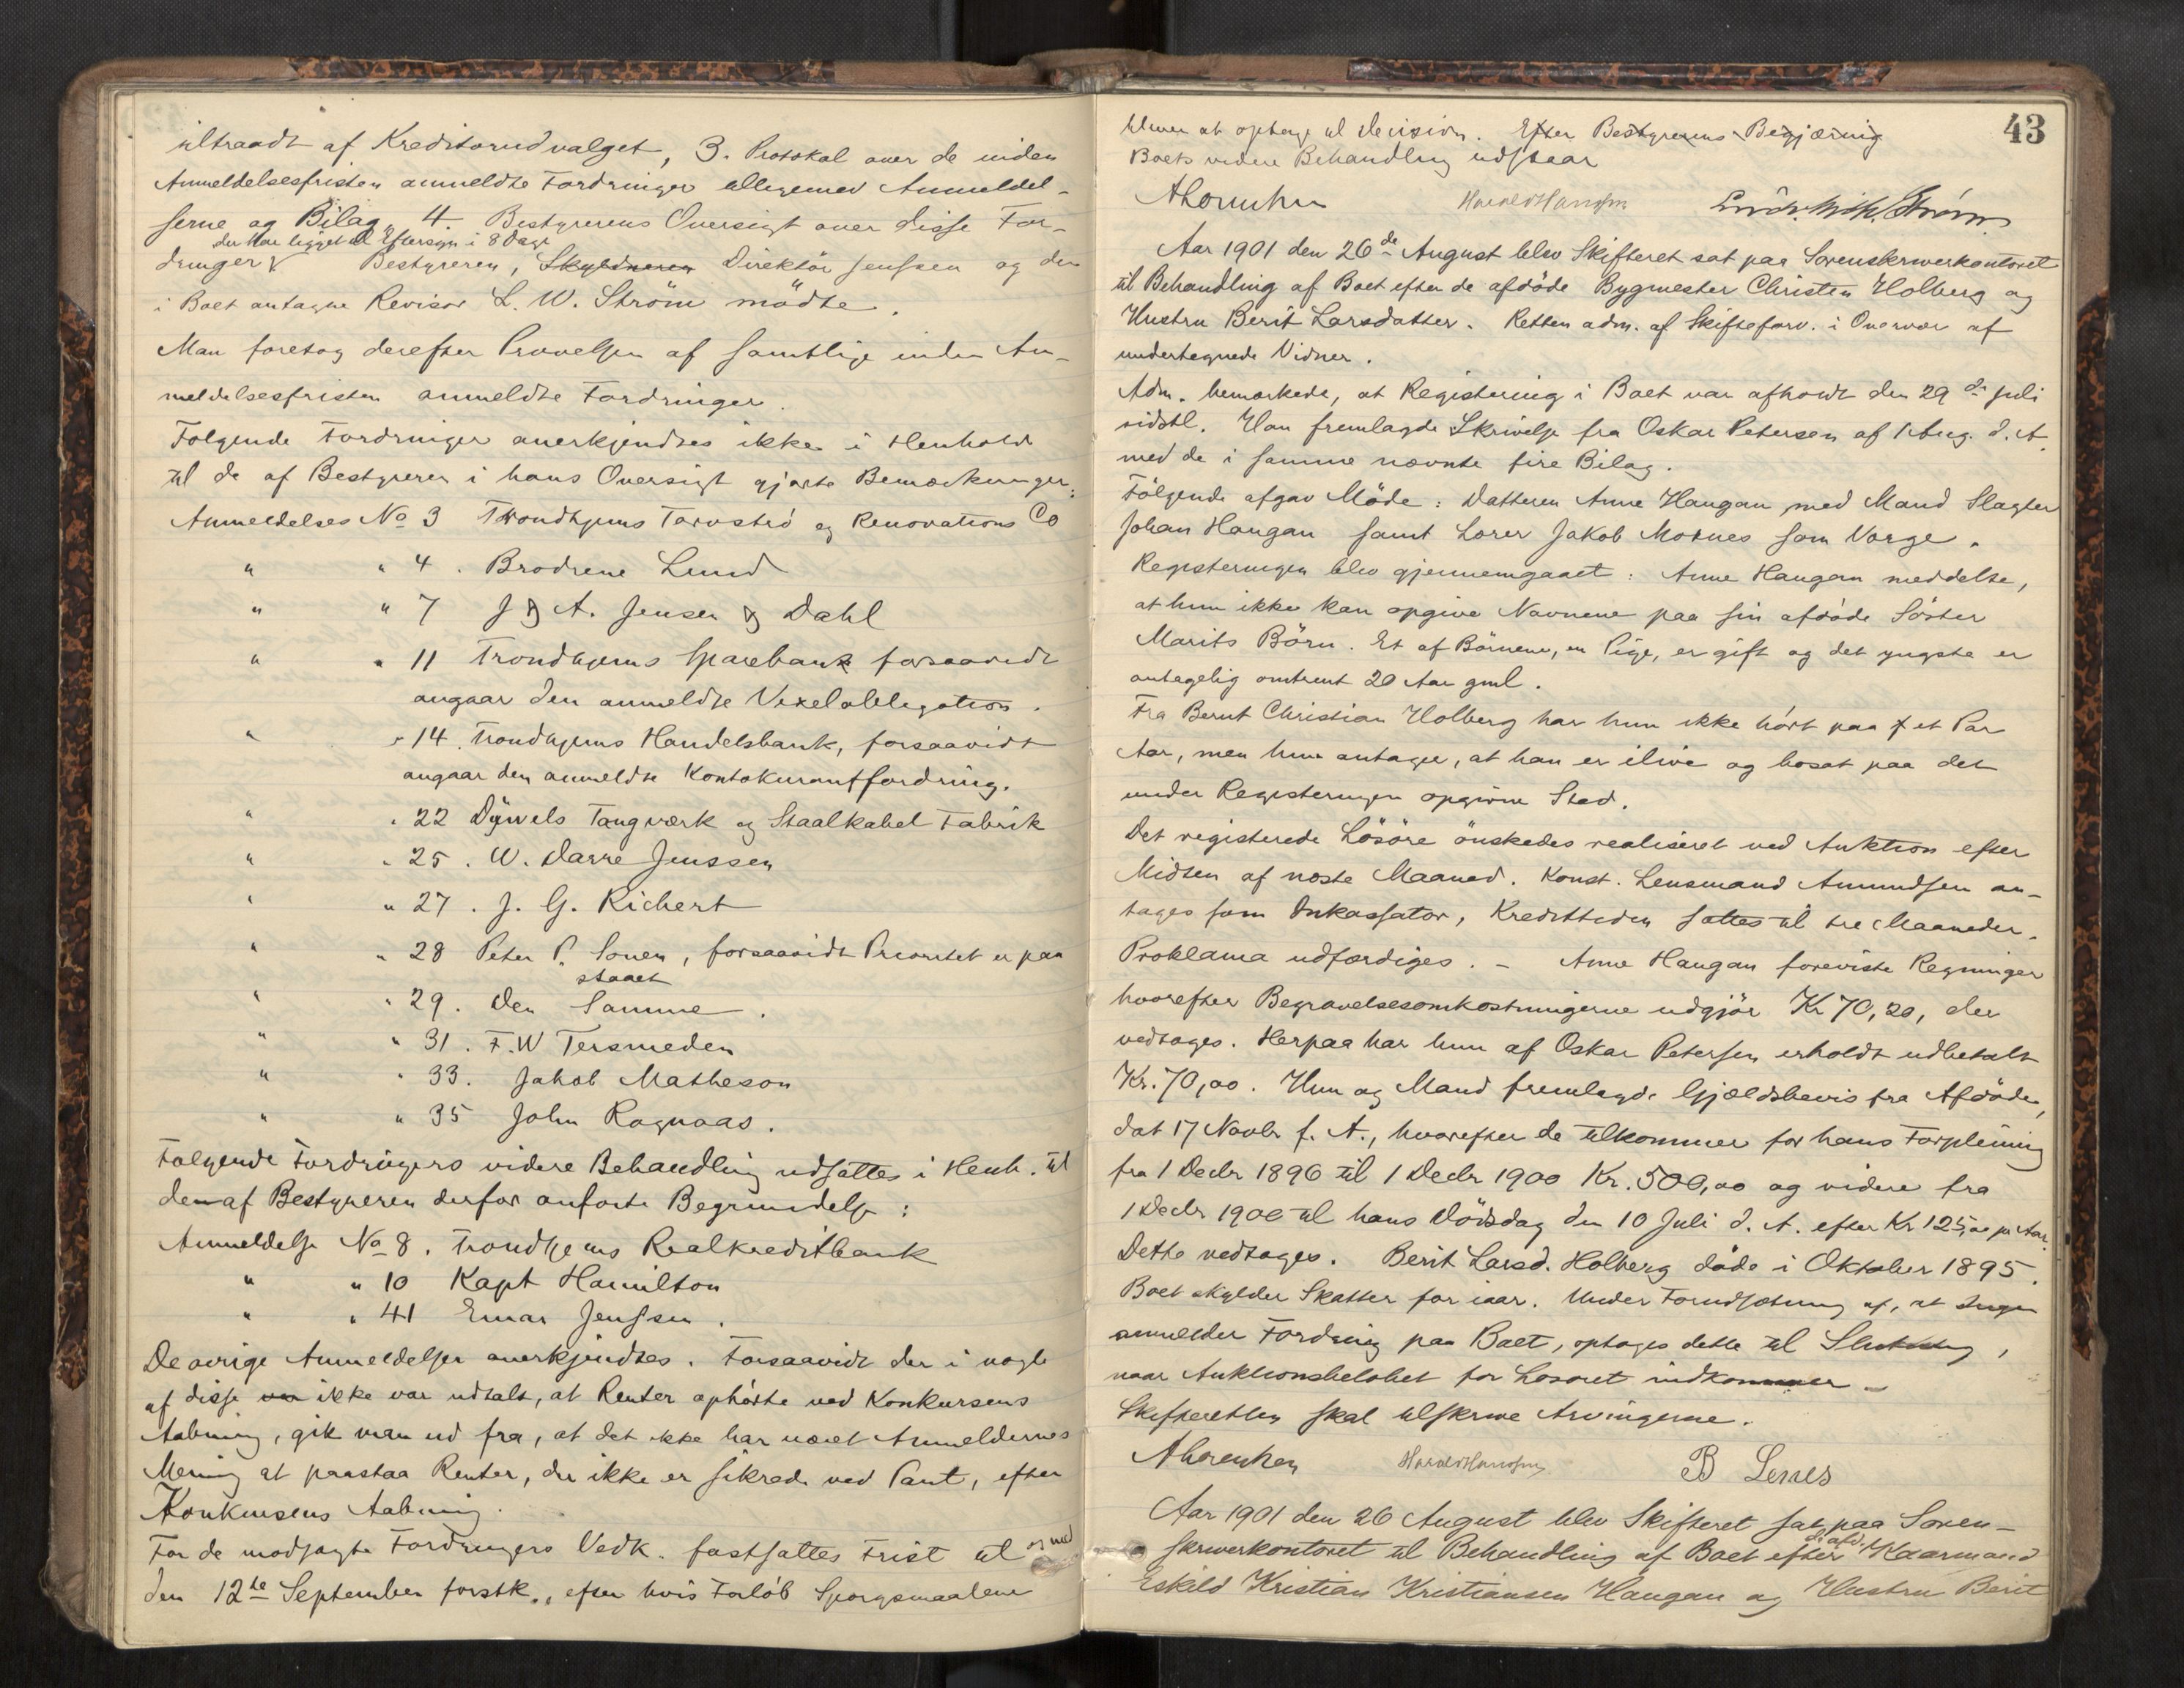 tiltraadt af Kreditorudvalget, 3. Protokol over de inden
Anmeldelsesfristen anmeldte Fordringer alligemed Anmeldel-
serne og Bilag, 4. Bestyrerens Oversigt over disse For-
der har ligget til Eftersyn i 8 Dage
dringer. Bestyreren, Skyldneren Direktör Jenssen og den
i Boet antagne Revisor L. W. Ström mödte.
Man foretog derefter Prövelsen af samtlige inden An-
meldelsesfristen anmeldte Fordringer.
Følgende Fordringer anerkjendtes ikke i Henhold
til de af Bestyreren i hans Oversigt gjorte Bemærkninger:
Anmeldelses No 3 Trondhjems Torvströ og Renovations Co
" " 4. Brödrene Lund
" " 7 J & A. Jensen & Dahl
" " 11 Trondhjems Sparebank forsaavidt
angaar den anmeldte Vexelobligation.
" " 14. Trondhjems Handelsbank, forsaavidt
angaar den anmeldte Kontokurantfordring.
" " 22 Dÿvels Taugværk og Staalkabel Fabrik
" " 25. W. Darre Jenssen
" " 27. J. G. Richert
" " 28 Peter P. Sonen, forsaavidt Prioritet er paa
staaet
" " 29. Den Samme.
" " 31. F. W Tersmeden
" " 33. Jakob Matheson
" " 35 John Rognaas.
Følgende Fordringers videre Behandling udsattes i Henh. til
den af Bestyreren derfor anførte Begrundelse:
Anmeldelse No 8. Trondhjems Realkreditbank
" " 10 Kapt Hamilton
" " 41 Einar Jenssen.
De øvrige Anmeldelser anerkjendtes. Forsaavidt der i nogle
af disse var ikke var udtalt, at Renter ophörte ved Konkursens
Aabning, gik man ud fra, at det ikke har været Anmeldernes
Mening at paastaa Renter, der ikke er sikrede ved Pant, efter
Konkursens Aabning.
For de modsagte Fordringers Vedk. fastsattes Frist til og med
den 12te September førstk., efter hvis Forløb Spørgsmaalene
43
bliver at optage til Decision. Efter Bestyrerens Begjæring
Boets videre Behandling udstaar
Harald Hansen
Ludv. Wilh. Ström
Aar 1901 den 26de August blev Skifteret sat paa Sorenskriverkontoret
til Behandling af Boet efter de afdöde Bygmester Christen Holberg og
Hustru Berit Larsdatter. Retten adm. af Skifteforv. i Overvær af
undertegnede Vidner.
Adm. bemærkede, at Registering i Boet var afholdt den 29de Juli
sidstl. Han fremlagde Skrivelse fra Oskar Petersen af 1 Aug. d. A.
med de i samme nævnte fire Bilag.
Fölgende afgav Möde: Datteren Anne Haugan med Mand Slagter
Johan Haugan samt Lærer Jakob Moknes som Værge.
Registeringen blev gjennemgaaet: Anne Haugan meddelte,
at hun ikke kan opgive Navnene paa sin afdöde Söster
Marits Börn. Et af Börnene, en Pige, er gift og det yngste er
antagelig omtrent 20 Aar gml.
Fra Bernt Christian Holberg har hun ikke hört paa et Par
Aar, men hun antager, at han er ilive og bosat paa det
under Registeringen opgivne Sted.
Det registerede Lösöre önskedes realiseret ved Auktion efter
Midten af næste Maaned. Konst. Lensmand Amundsen an-
tages som Inkassator, Kredittiden sattes til tre Maaneder.
Proklama udfærdiges. - Anne Haugan foreviste Regninger
hvorefter Begravelsesomkostningerne udgjör Kr 70,20, der
vedtages. Herpaa har hun af Oskar Petersen erholdt udbetalt
Kr. 70,00. Hun og Mand fremlagde Gjældsbevis fra Afdöde,
dat 17 Novbr f. A., hvorefter de tilkommer for hans Forpleining
fra 1 Decbr 1896 til 1 Decbr 1900 Kr. 500,00 og videre fra
1 Decbr 1900 til hans Dödsdag den 10 Juli d. A. efter Kr 125,00 pr Aar.
Dette vedtages. Berit Larsd. Holberg döde i Oktober 1895.
Boet skylder Skatter for iaar. Under Forudsætning af, at Ingen
anmelder Fordring paa Boet, optages dette til Slutning,
naar Auktionsbeløbet for Løsøret indkommer.
Skifteretten skal tilskrive Arvingerne.
Harald Hansen
B Lenes
Aar 1901 den 26 August blev Skifteret sat paa Soren-
skriverkontoret til Behandling af Boet efter de afd. Kaarmand
Eskild Kristian Kristiansen Haugan og Hustru Berit